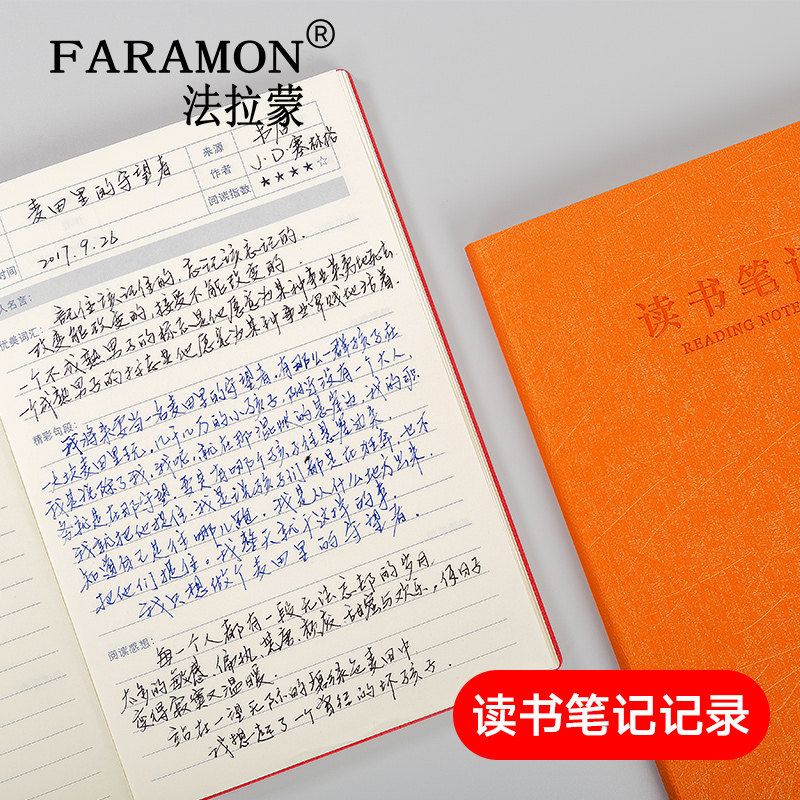 FARAMON®
法拉蒙
麦田里的守望者
来源
书店
作者
J.D.塞林格
阅读指数
★★★★☆
时间
2017.9.26
人名言:
记住该记住的,忘记该忘记的.
改变能改变的,接受不能改变的.
优美词汇:
一个不成熟男子的标志是他愿意为某种事业英勇地死去
一个成熟男子的标志是他愿意为某种事业卑贱地活着.
精彩句段:
我将来要当一名麦田里的守望者.有那么一群孩子在
一大块麦田里玩.几千几万的小孩子,附近没有一个大人,
我是说除了我.我呢,就在那混帐的悬崖边.我的职
务就是在那守望.要是有哪个孩子往悬崖边来,
我就把他捉住.我是说孩子们都是在狂奔,也不
知道自己是在往哪儿跑.我是从什么地方出来,
把他们捉住.我整天就干这样的事.
我只想做个麦田里的守望者.
阅读感想:
每一个人都有一段无法忘却的岁月
太多的敏感、偏执、甜蜜与欢乐,使日子
变得寂寞又温暖.
站在一望无际的碧绿色麦田中
我想起了一个曾经的坏孩子.
读书笔记
READING NOTE
读书笔记记录